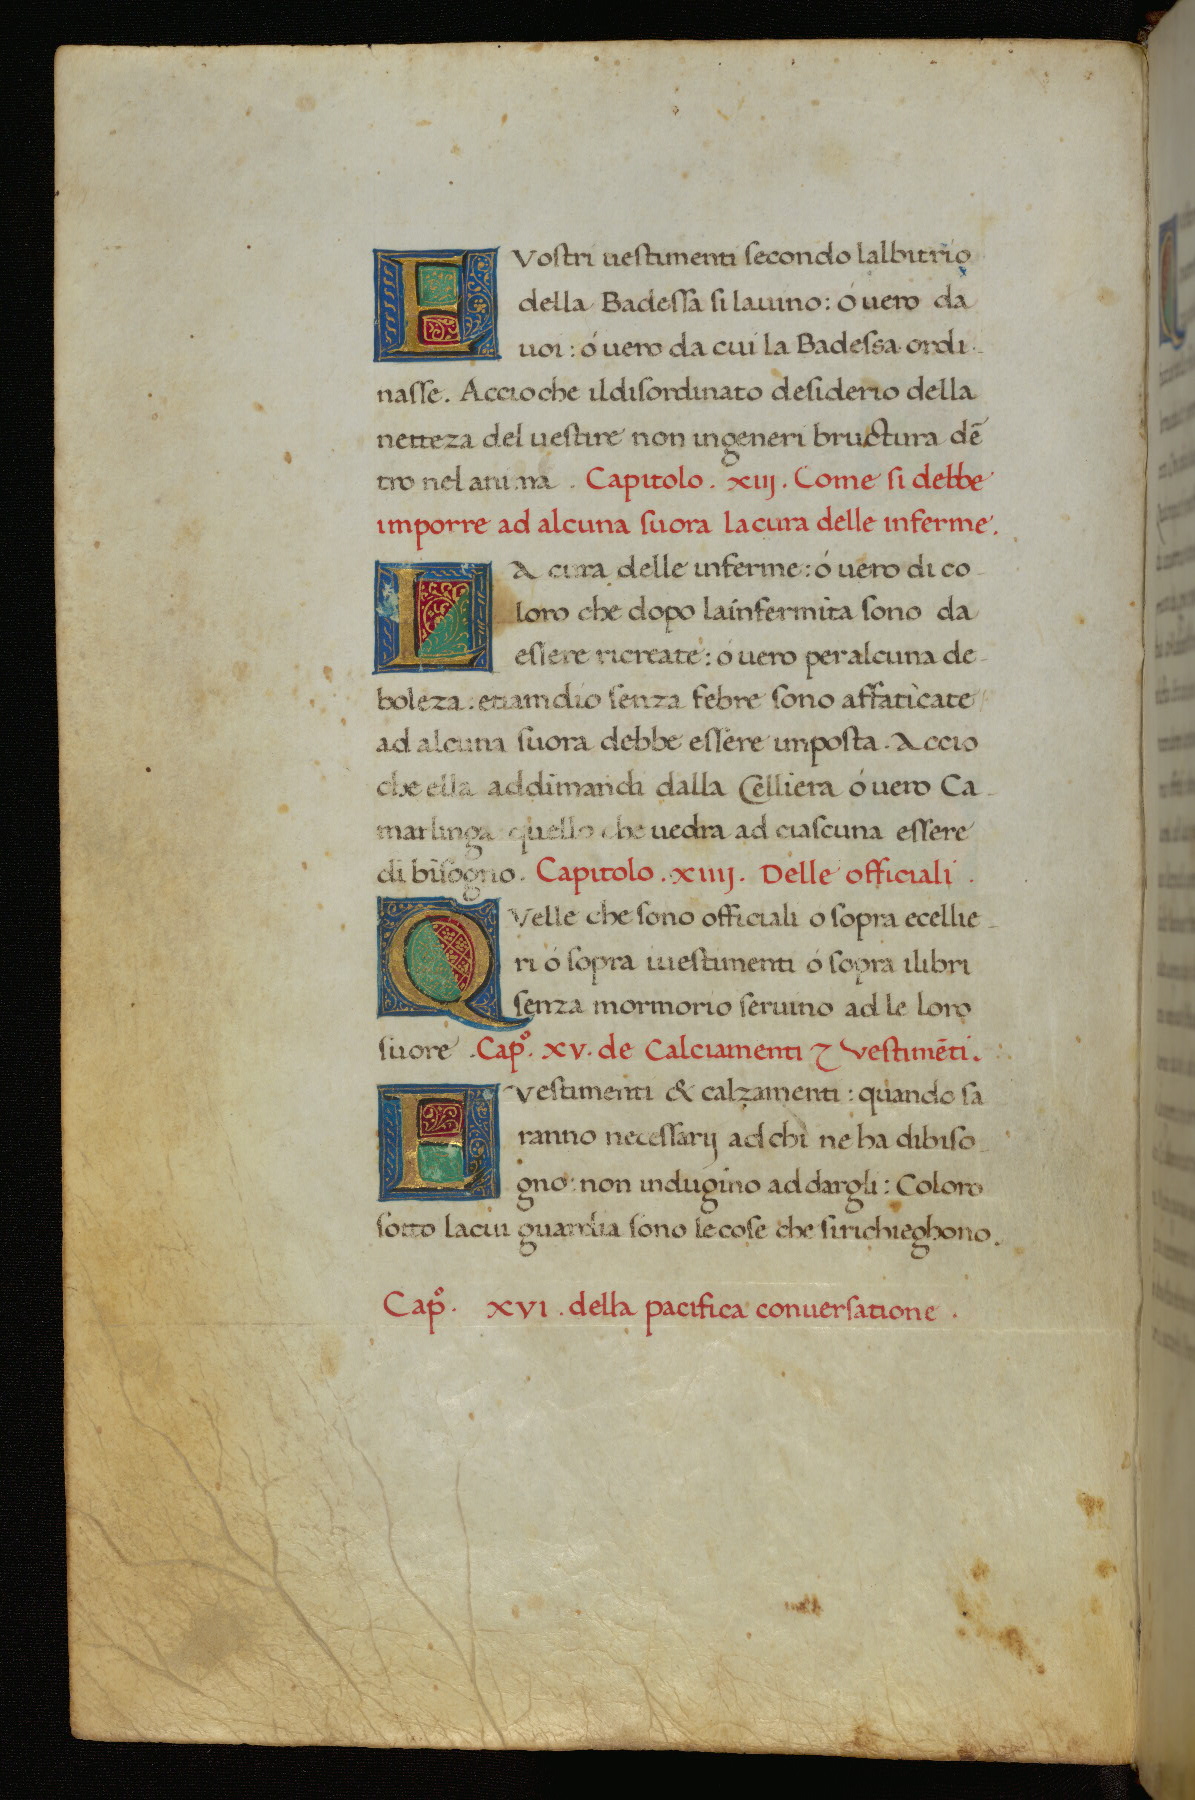 E Vostri uestimenti secondo lalbitrio
della Badessa si lauino: ó uero da
uoi: ó uero da cui la Badessa ordi-
nasse. Accioche ildisordinato desiderio della
netteza del uestire non ingeneri bructura dē
tro nel anima. Capitolo. xiij. Come si debbe
imporre ad alcuna suora lacura delle inferme.
LA cura delle inferme: ó uero di co-
loro che dopo lainfermita sono da
essere ricreate: ó uero peralcuna de-
boleza. etiamdio senza febre sono affaticate
ad alcuna suora debbe essere imposta. Accio
che ella addimandi dalla Celliera ó uero Ca-
marlinga quello che uedra ad ciascuna essere
di bisogno. Capitolo. xiiij. Delle officiali.
QVelle che sono officiali o sopra ecellie-
ri ó sopra iuestimenti ó sopra ilibri
senza mormorio seruino ad le loro
suore. Capº. xv. de Calciamenti ⁊ vestimēti.
E vestimenti & calzamenti: quando sa
ranno necessarij ad chi ne ha dibiso-
gno: non indugino ad dargli: Coloro
sotto lacui guardia sono le cose che sirichieghono.
Capº. xvi. della pacifica conuersatione.